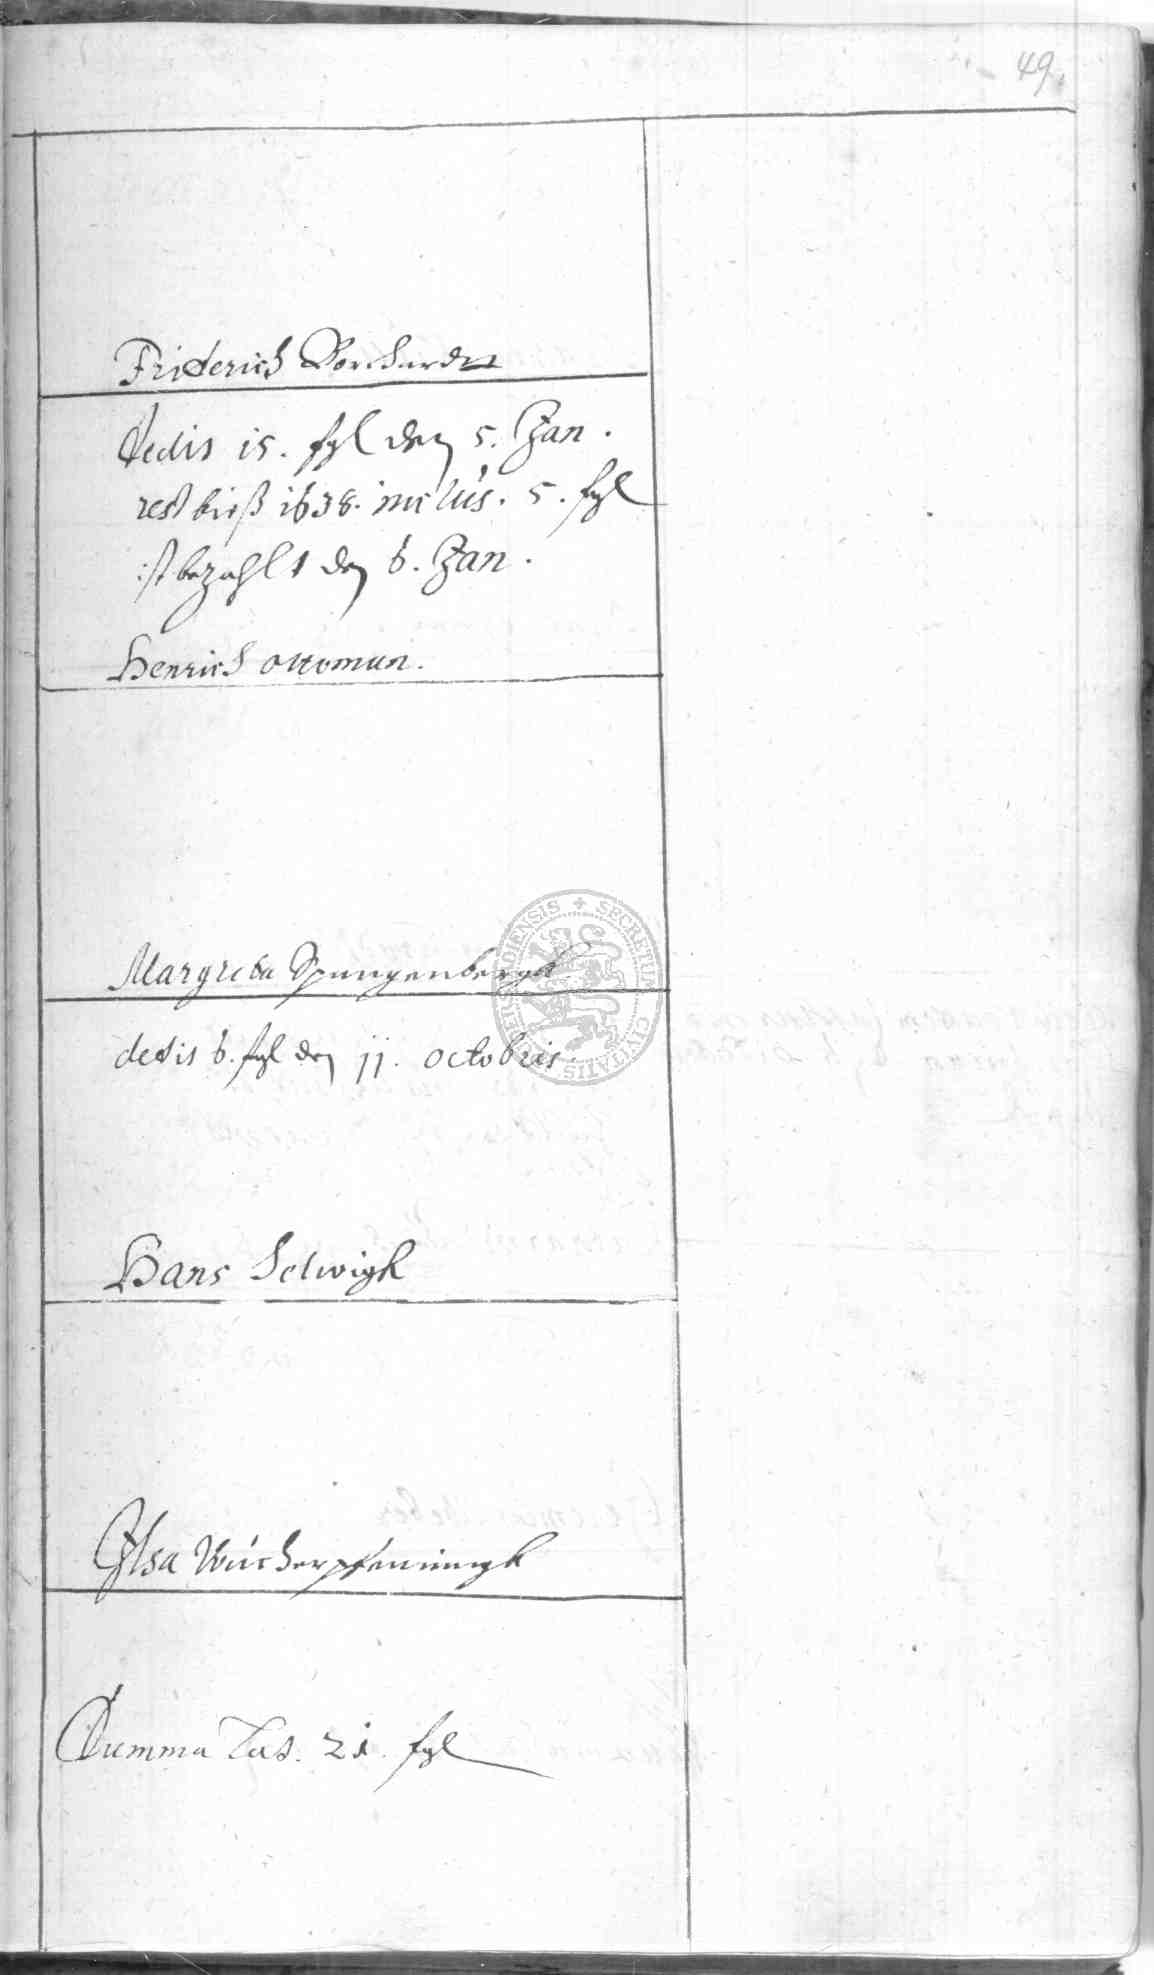 49.
Friderich Borchardt
Dedit 15. fgl den 5. Jan.
rest bieß 1638. inclus. 5. fgl
ist bezahlt den 6. Jan.
Henrich ottoman.
Margreta Spangenbergk
dedit 6. fgl den 11. octobris.
Hans Helwigk
Ilsa Wücherpfenningk
Summa Lat. 21. fgl